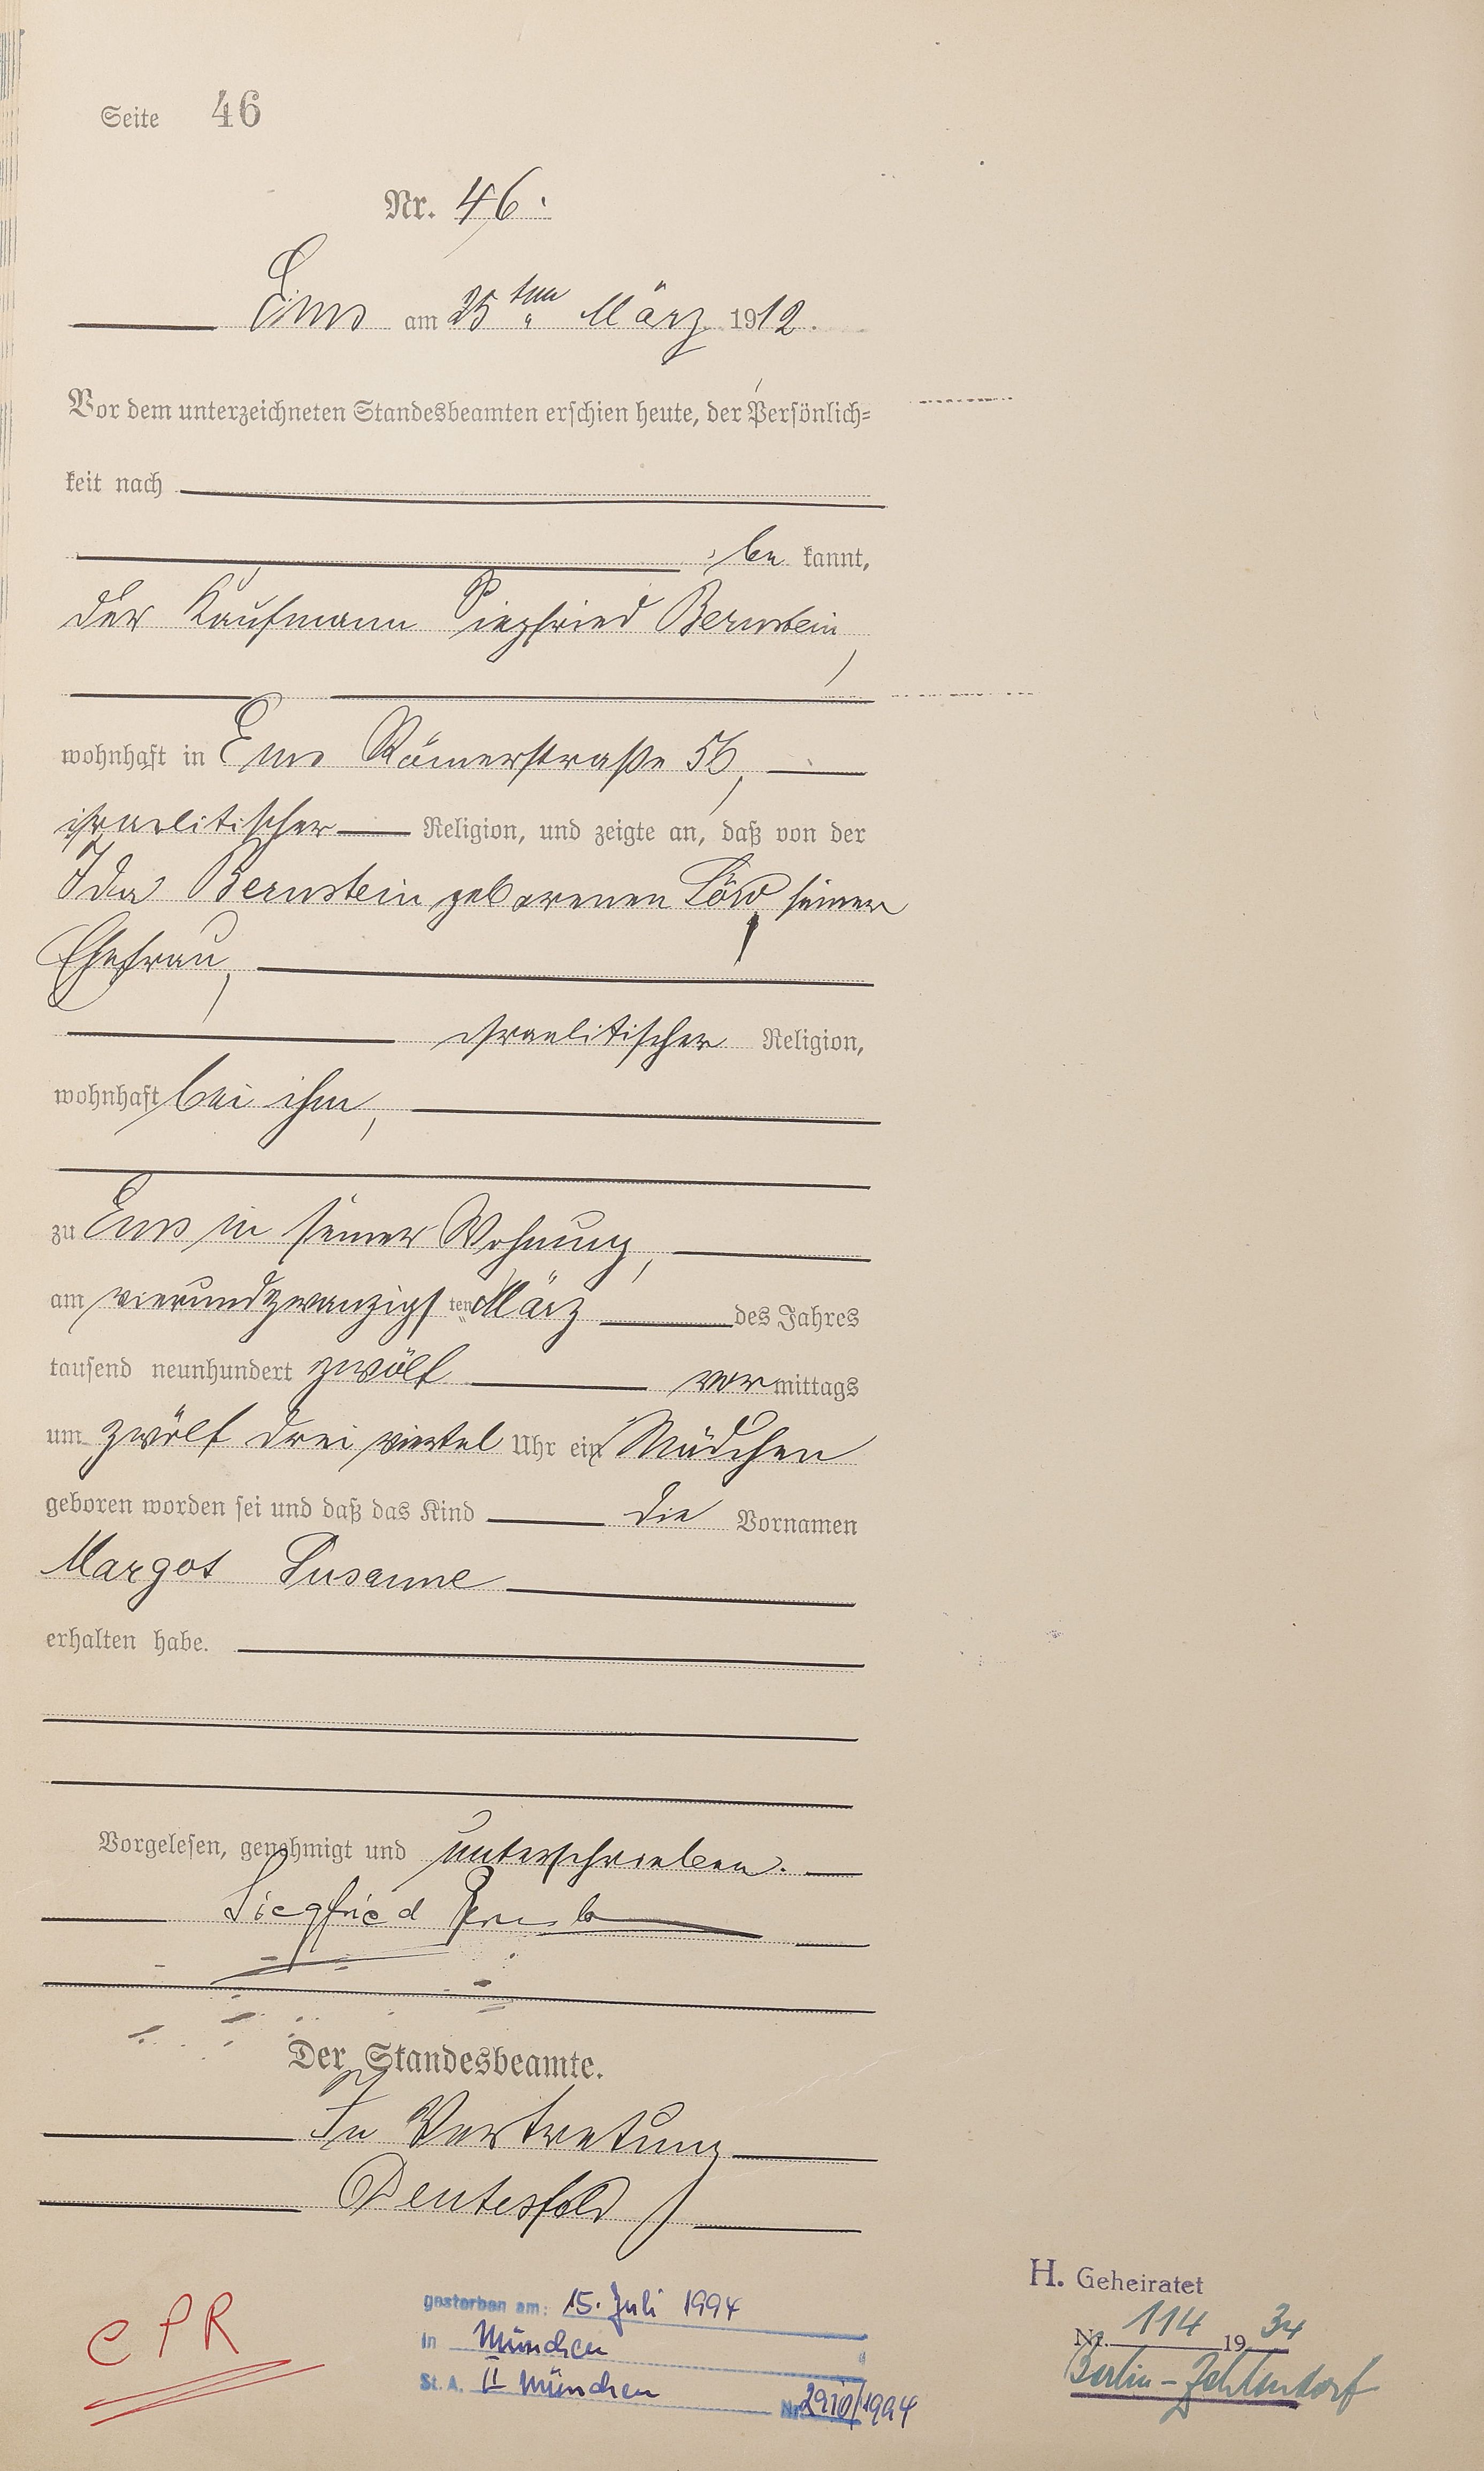 Seite 46
Nr. 46.
Ems am 25ten März 1912.
Vor dem unterzeichneten Standesbeamten erschien heute, der Persönlich=
keit nach
be kannt,
der Kaufmann Siegfried Bernstein,
wohnhaft in Ems Römerstraße 56,
israelitischer Religion, und zeigte an, daß von der
Ida Bernstein geborenen Löw, seiner
Ehefrau,
israelitischer Religion,
wohnhaft bei ihm,
zu Ems in seiner Wohnung,
am vierundzwanzigsten März des Jahres
tausend neunhundert zwölf vormittags
um zwölf drei viertel Uhr ein Mädchen
geboren worden sei und daß das Kind die Vornamen
Margot Susanne
erhalten habe.
Vorgelesen, genehmigt und unterschrieben.
Siegfried Bernstein
Der Standesbeamte.
In Vertretung
H. Geheiratet
Nr. 114 1934
Berlin-Zehlendorf
CPR
gestorben am: 15. Juli 1994
in München
St. A. II München Nr. 2910/1994